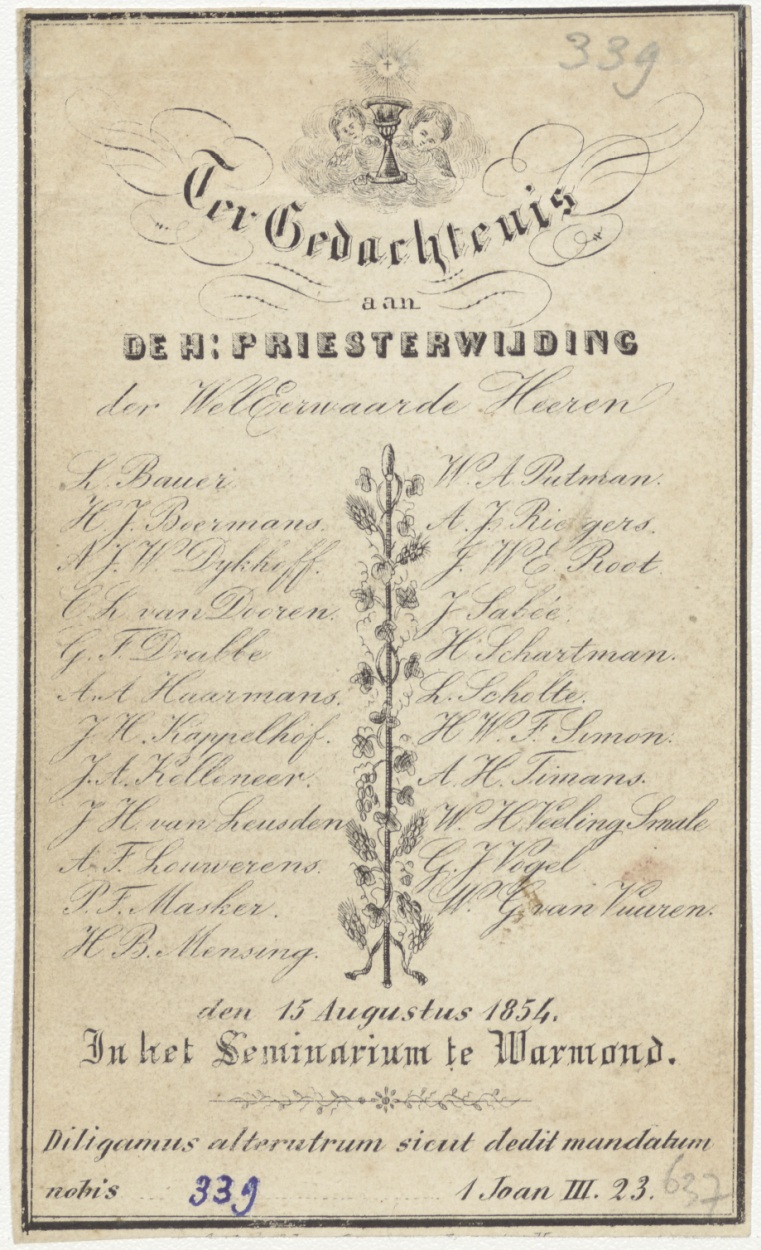 339
Ter Gedachtenis
aan
DE H: PRIESTERWIJDING
der WelEerwaarde Heeren
L. Bauer.
H. J. Beermans.
A. J. W. Dykhoff.
C. L. van Dooren.
G. F. Drabbe
A. A. Haarmans.
J. H. Kappelhof.
J. A. Kolloneer.
J. H. van Leusden
A. F. Louwerens.
P. F. Masker.
H. B. Mensing.
W. A. Putman.
A. J. Riegers.
J. W. E. Root.
J. Sabée.
H. Schartman.
L. Scholte.
H. W. F. Simon.
A. H. Timans.
W. H. Veeling Smale
G. J. Vogel
W. G. van Vuuren.
den 15 Augustus 1854.
In het Seminarium te Warmond.
Diligamus alterutrum sicut dedit mandatum
nobis 339 1 Joan III. 23.
637